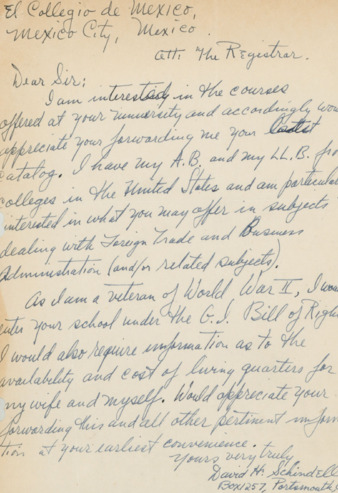 El Collegio de Mexico,
Mexico City, Mexico.
Att: The Registrar.
Dear Sir:
I am interested in the courses
offered at your university and accordingly wou
appreciate your forwarding me your latest
catalog. I have my A.B. and my LL.B. fro
colleges in the United States and am particular
interested in what you may offer in subjects
dealing with Foreign Trade and Business
Administration (and/or related subjects).
As I am a veteran of World War II, I wou
enter your school under the G.I. Bill of Righ
I would also require information as to the
availability and cost of living quarters for
my wife and myself. Would appreciate your
forwarding this and all other pertinent inform
tion at your earliest convenience.
Yours very truly
David H. Schindell
Box 1257, Portsmouth,